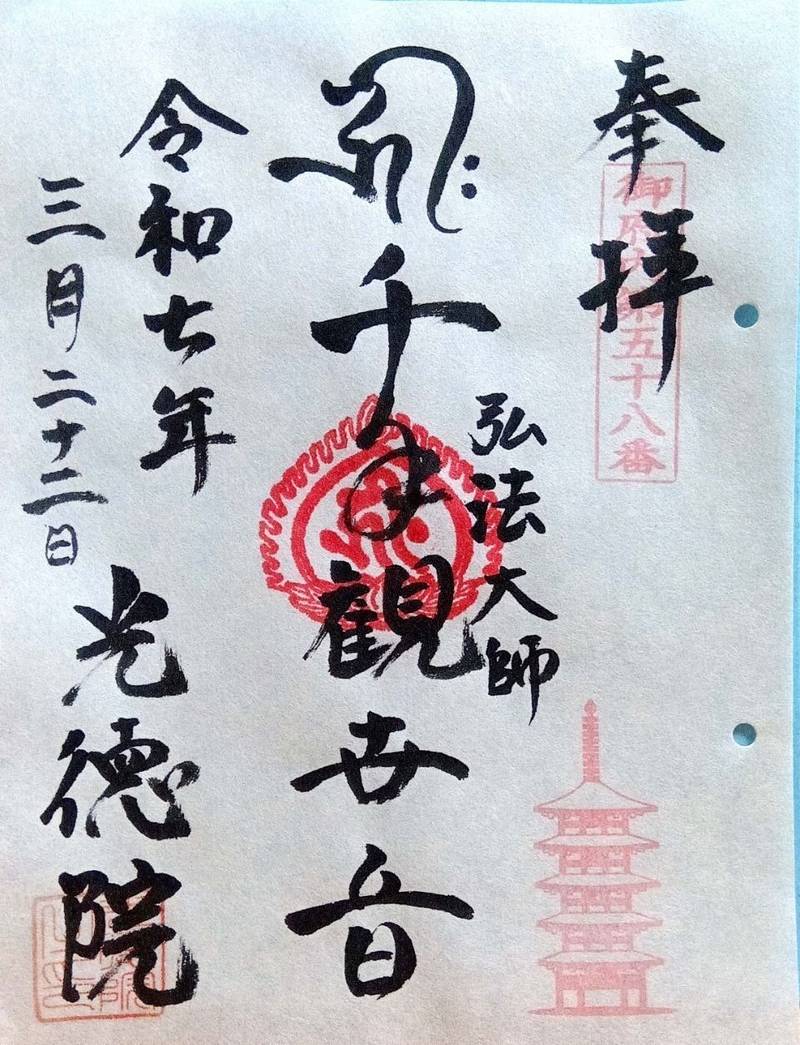 奉拝
御府内第五十八番
弘法大師
千手観世音
令和七年
三月二十二日
光徳院